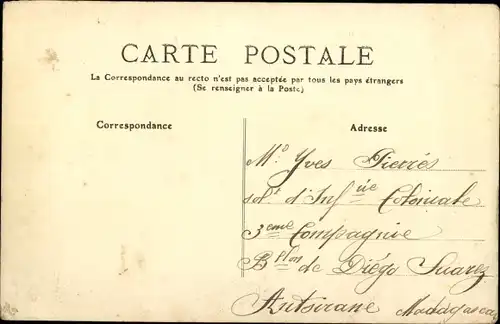 CARTE POSTALE
La Correspondance au recto n'est pas acceptée par tous les pays étrangers
(Se renseigner à la Poste)
Correspondance
Adresse
Mr Yves Pierrès
solt d'Infie Coloniale
3eme Compagnie
Btlon de Diégo Suarez
Antsirane Madagascar